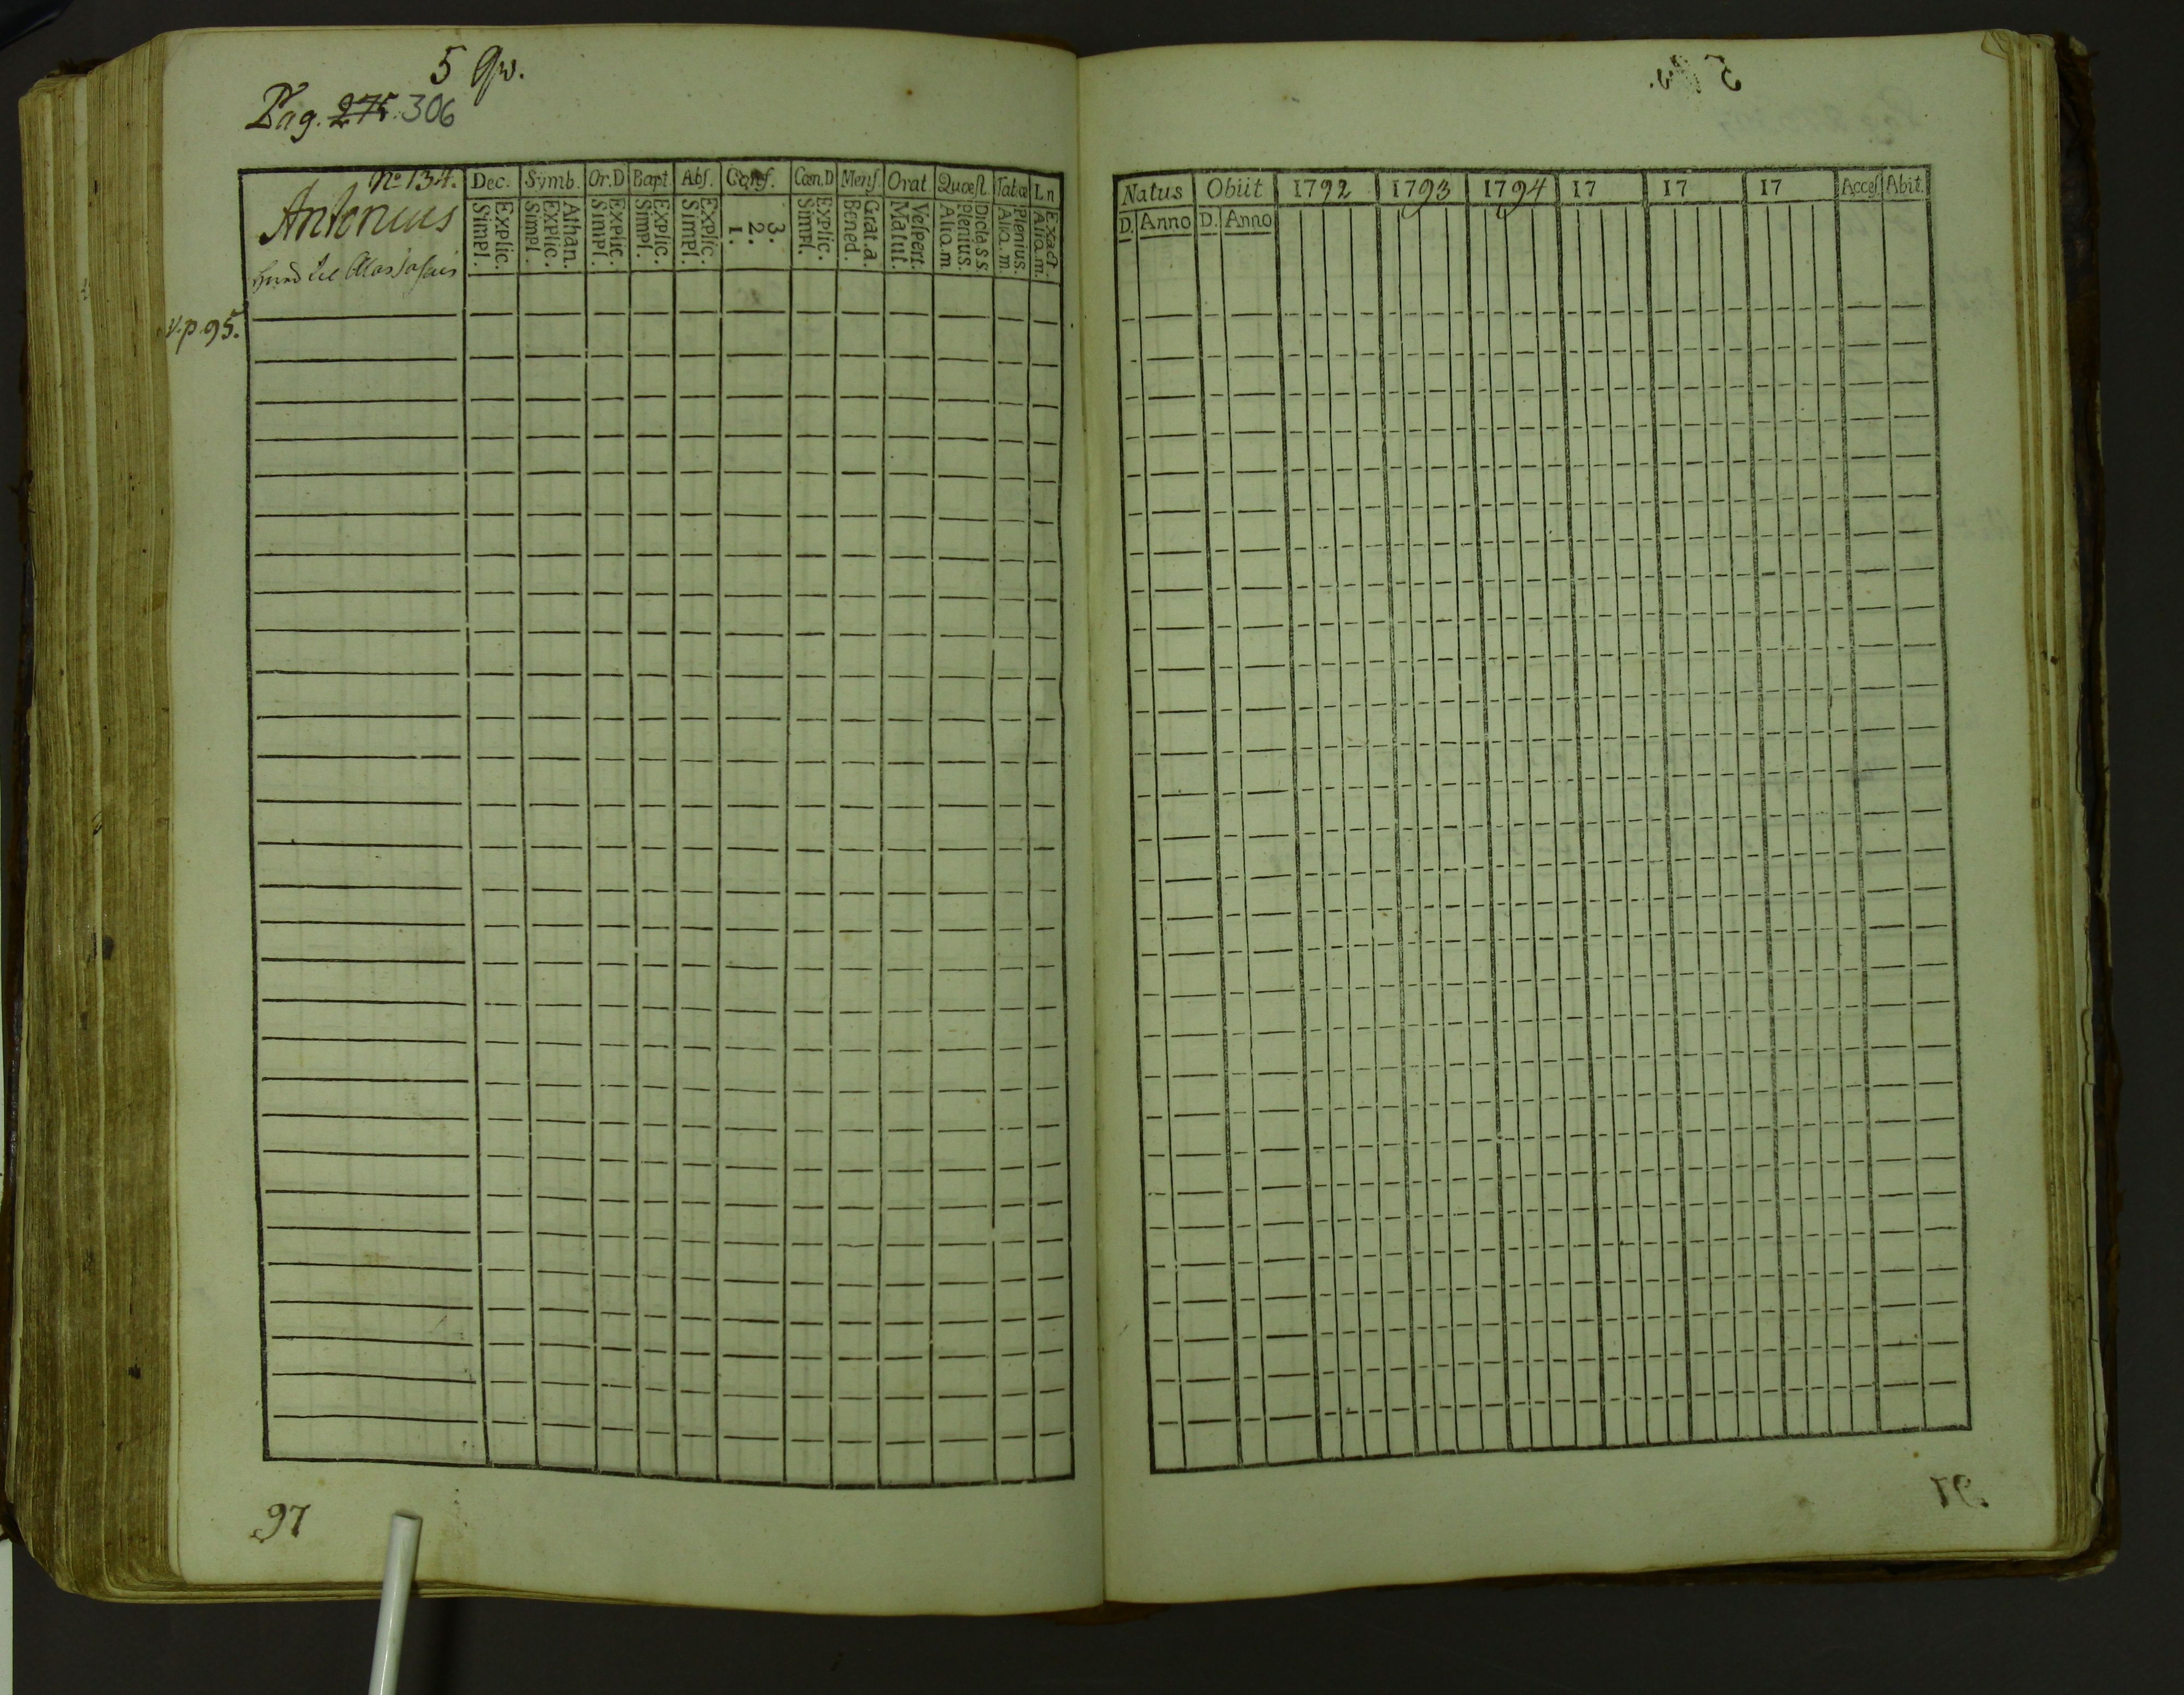 5 Qv.
Pag. 275. 306
No 134. Dec. Symb. Or.D Bapt. Abſ. Conf. Cœn.D Menſ. Orat. Quœſt. Tabœ Ln
Antonius
Explic. Simpl. Athan. Explic. Simpl. Explic. Simpl. Explic. Simpl. Explic. Simpl. 3. 2. 1. Explic. Simpl. Grat.a. Bened. Veſpert. Matut. Dicta.s.s. Plenius. Aliq.m Plenius. Aliq.m. Exact. Aliq.m.
v.p.95.
97
Natus Obiit 1792 1793 1794 17 17 17 Acceſ. Abit.
D. Anno D. Anno